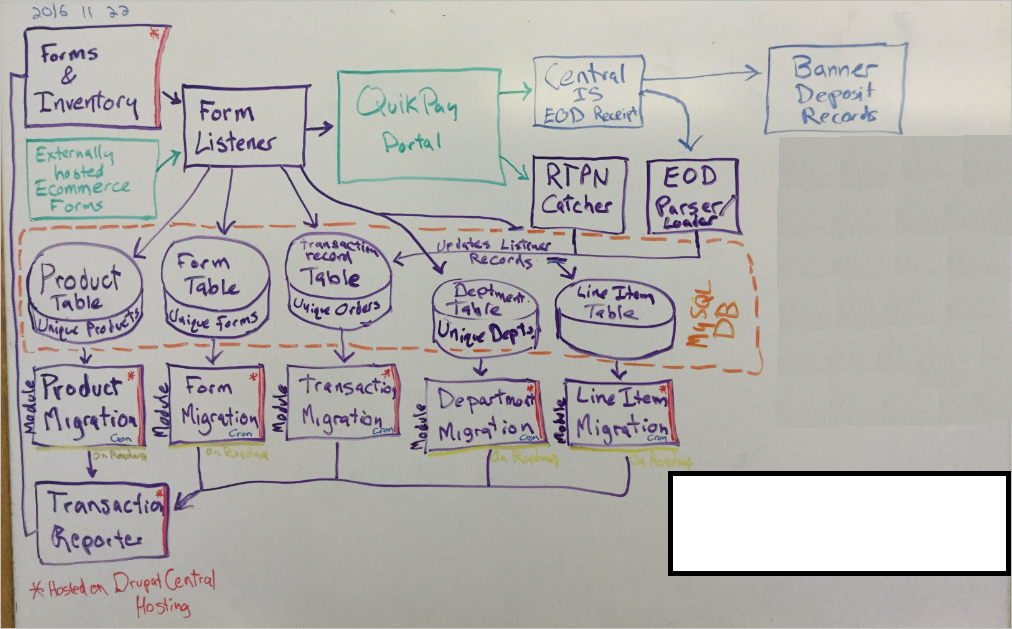 2016 11 22
Forms
&
Inventory
*
Externally
hosted
Ecommerce
Forms
Form
Listener
QuikPay
Portal
Central
IS
EOD Receipt
Banner
Deposit
Records
RTPN
Catcher
EOD
Parser/
Loader
Updates Listener
Records
Product
Table
Unique Products
Form
Table
Unique Forms
Transaction
record
Table
Unique Orders
Deptment
Table
Unique Depts
Line Item
Table
MySQL
DB
Module
Product *
Migration
Cron
On Roadmap
Module
Form *
Migration
Cron
On Roadmap
Module
Transaction *
Migration
Cron
Module
Department *
Migration
Cron
On Roadmap
Module
Line Item *
Migration
Cron
On Roadmap
Transaction *
Reporter
* Hosted on Drupal Central
Hosting